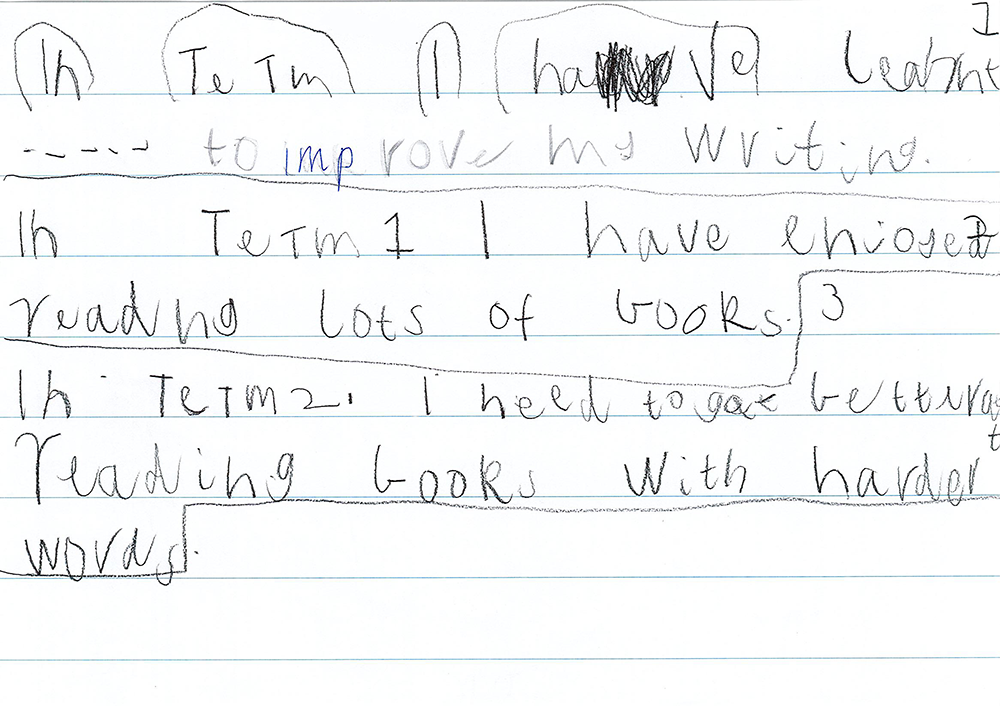 In Term I have learnt 1
----- to improve my writing.
In Term 1 I have eniosed 2
reading lots of books. 3
In Term 2. I need to get better at
reading books with harder
words.